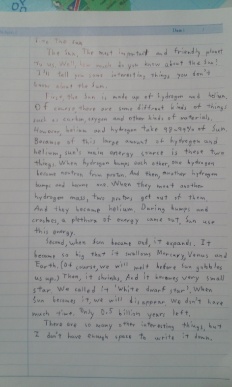 The Sun
The Sun, The most important and friendly planet
to us. Well, how much do you know about the Sun?
I'll tell you some interesting things you don't
know about the Sun.
First, the Sun is made up of hydrogen and helium.
Of course, there are some different kinds of things
such as carbon, oxygen and other kinds of materials.
However, helium and hydrogen take up 99% of Sun.
Because of this large amount of hydrogen and
helium, sun's main energy source is these two
things. When hydrogen bumps each other, the hydrogen
become neutron from proton. And then, another hydrogen
bumps and becomes one. When they meet another
hydrogen mass, two protons get out of them.
And they become helium. During bumps and
crashes, a plethora of energy came out. Sun use
this energy.
Second, when Sun become old, it expands. It
became so big that it swallows Mercury, Venus and
Earth. (Of course, we will melt before Sun gobbles
us up.) Then, it shrinks, And it becomes very small
star. We called it 'White dwarf star'. When
Sun becomes it, we will disappear. We don't have
much time. Only 5.5 billion years left.
There are so many other interesting things, but
I don't have enough space to write it down.